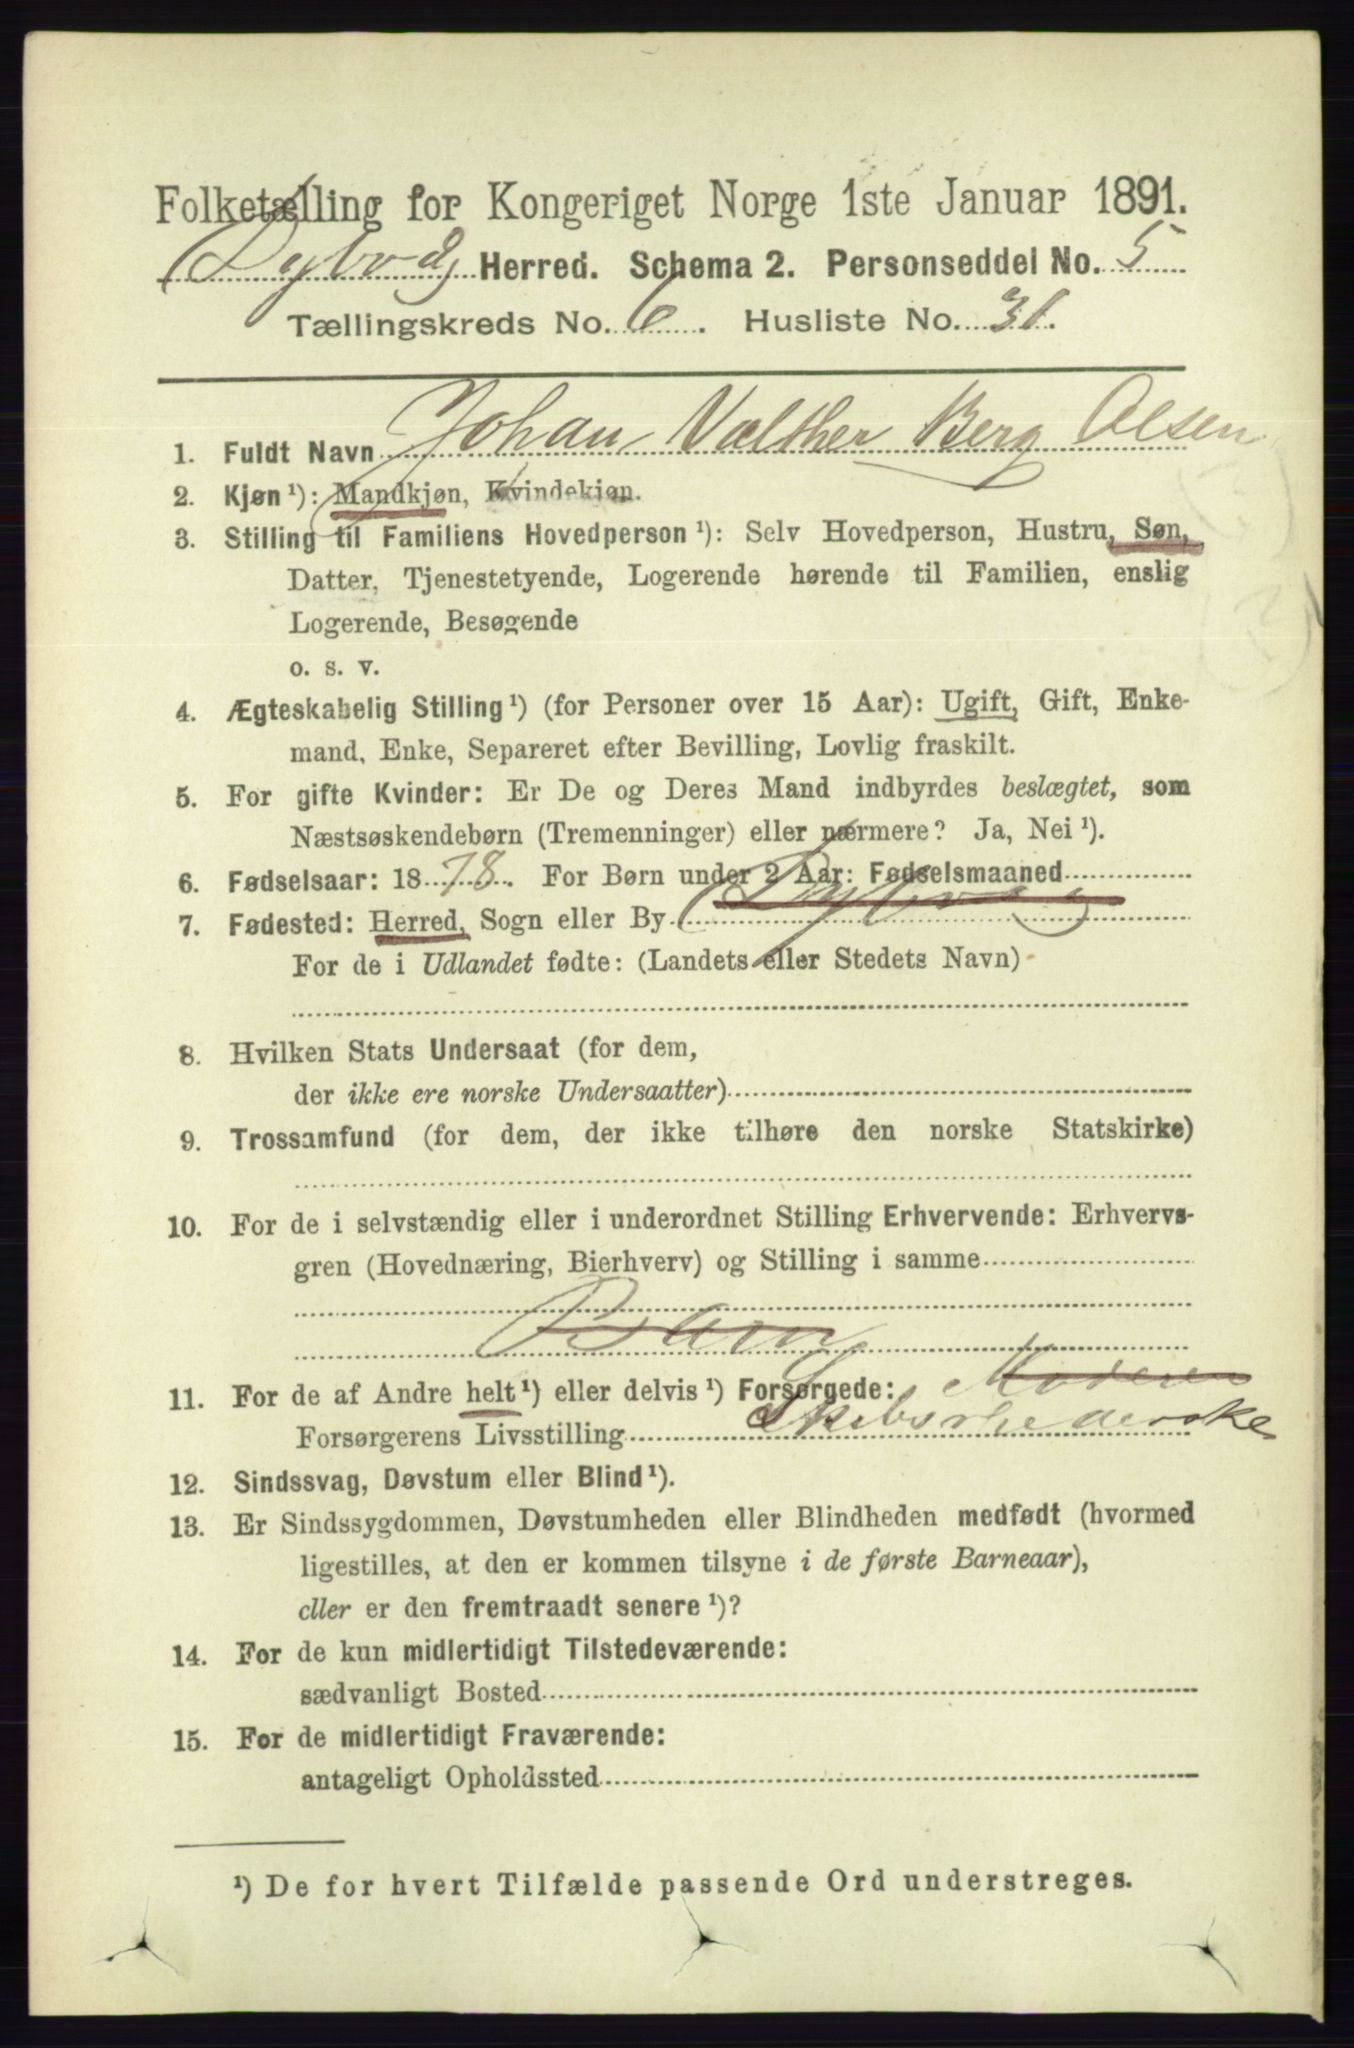 Folketælling for Kongeriget Norge 1ste Januar 1891.
Dybvaag Herred. Schema 2. Personseddel No. 5
Tællingskreds No. 6. Husliste No. 31.
1. Fuldt Navn Johan Valther Berg Olsen
2. Kjøn¹): Mandkjøn, Kvindekjøn.
3. Stilling til Familiens Hovedperson¹): Selv Hovedperson, Hustru, Søn,
Datter, Tjenestetyende, Logerende hørende til Familien, enslig
Logerende, Besøgende
o. s. v.
4. Ægteskabelig Stilling¹) (for Personer over 15 Aar): Ugift, Gift, Enke-
mand, Enke, Separeret efter Bevilling, Lovlig fraskilt.
5. For gifte Kvinder: Er De og Deres Mand indbyrdes beslægtet, som
Næstsøskendebørn (Tremenninger) eller nærmere? Ja, Nei¹).
6. Fødselsaar: 1878. For Børn under 2 Aar: Fødselsmaaned
7. Fødested: Herred, Sogn eller By Dybvaag
For de i Udlandet fødte: (Landets eller Stedets Navn)
8. Hvilken Stats Undersaat (for dem,
der ikke ere norske Undersaatter)
9. Trossamfund (for dem, der ikke tilhøre den norske Statskirke)
10. For de i selvstændig eller i underordnet Stilling Erhvervende: Erhvervs-
gren (Hovednæring, Bierhverv) og Stilling i samme
Barn
11. For de af Andre helt¹) eller delvis¹) Forsørgede: Moderen
Forsørgerens Livsstilling Skibsrhederske
12. Sindssvag, Døvstum eller Blind¹).
13. Er Sindssygdommen, Døvstumheden eller Blindheden medfødt (hvormed
ligestilles, at den er kommen tilsyne i de første Barneaar),
cller er den fremtraadt senere¹)?
14. For de kun midlertidigt Tilstedeværende:
sædvanligt Bosted
15. For de midlertidigt Fraværende:
antageligt Opholdssted
¹) De for hvert Tilfælde passende Ord understreges.